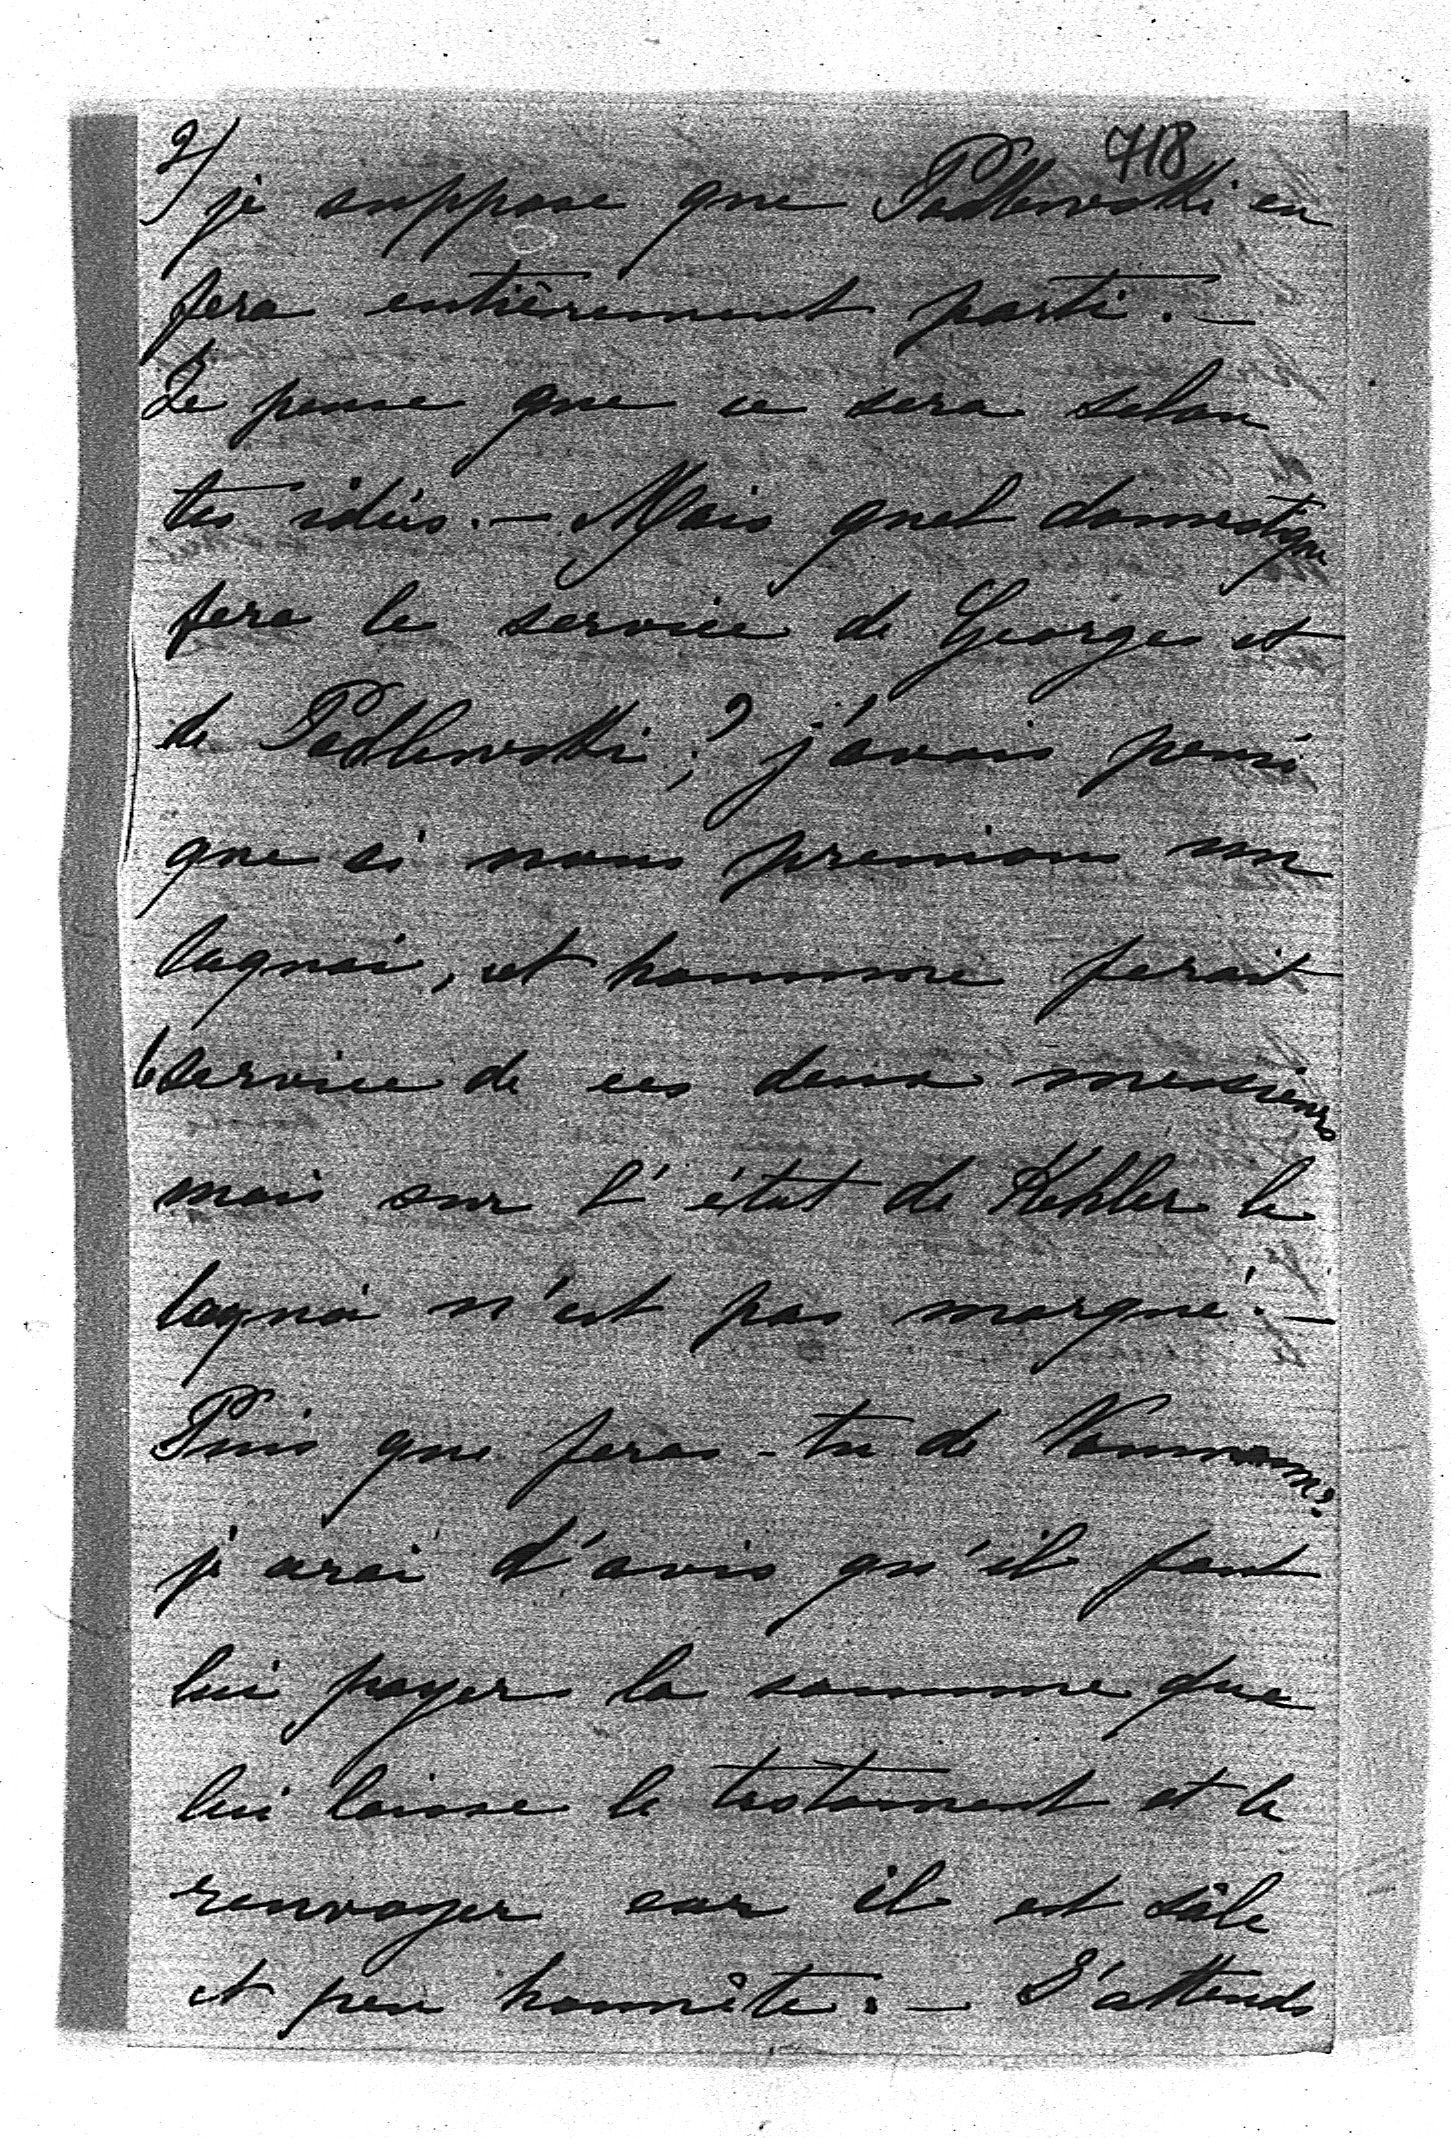 2/ 718
je suppose que Podlewski en
fera entièrement parti. —
Je pense que ce sera selon
tes idées. — Mais quel domestique
fera le service de Georges et
de Podlewski ? j'avais pensé
que si nous prenions un
laquai, cet homme ferait
le service de ces deux messieurs
mais sur l'état de Kehler le
laquai n'est pas marqué. —
Puis que feras-tu de
je d'avis qu'il faut
lui payer la somme que
lui laisse le testament et le
renvoyer car il est sâle
et peu honnête. — J'attends